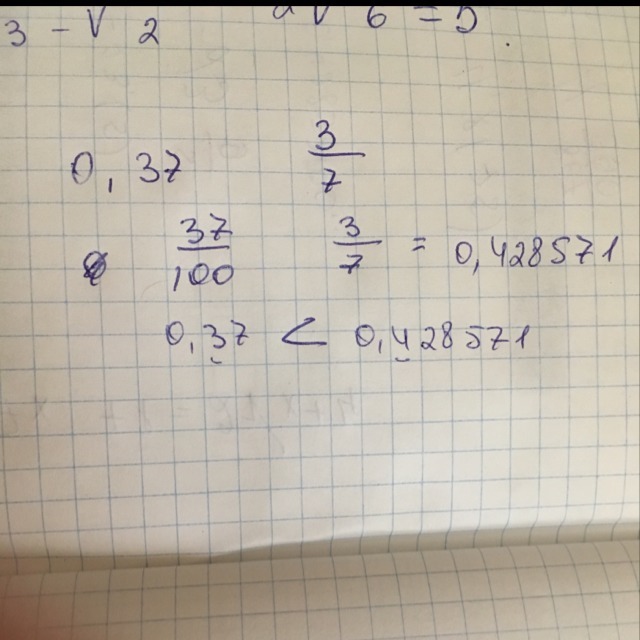 3 - √ 2 a √ 6 = 5 .
0,37 3/7
37/100 3/7 = 0,428571
0,37 < 0,428571